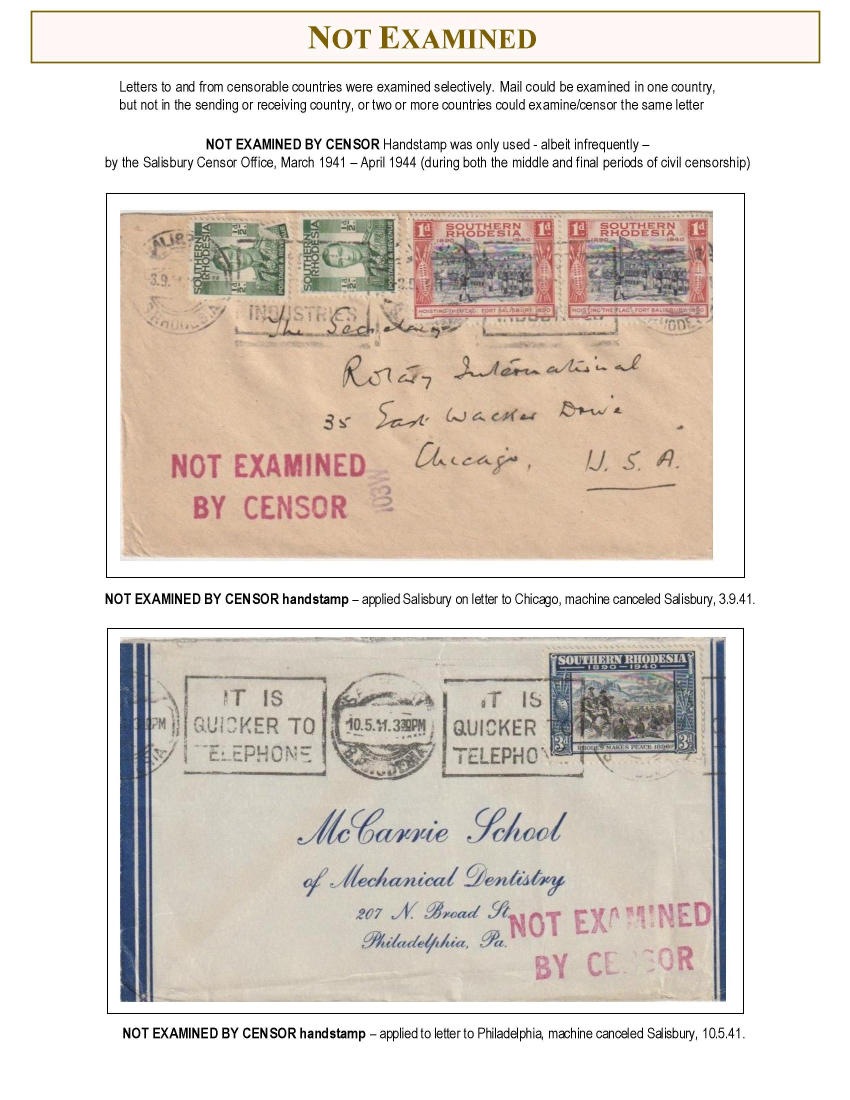 NOT EXAMINED
Letters to and from censorable countries were examined selectively. Mail could be examined in one country,
but not in the sending or receiving country, or two or more countries could examine/censor the same letter
NOT EXAMINED BY CENSOR Handstamp was only used - albeit infrequently –
by the Salisbury Censor Office, March 1941 – April 1944 (during both the middle and final periods of civil censorship)
SOUTHERN RHODESIA ½d ½d POSTAGE & REVENUE
SOUTHERN RHODESIA ½d ½d POSTAGE & REVENUE
1d SOUTHERN RHODESIA 1d
1890 1940
HOISTING THE FLAG, FORT SALISBURY, 1890
1d SOUTHERN RHODESIA 1d
1890 1940
HOISTING THE FLAG, FORT SALISBURY, 1890
INDUSTRIES
The Secretary
Rotary International
35 East Wacker Drive
Chicago,
U. S. A.
NOT EXAMINED
BY CENSOR
NOT EXAMINED BY CENSOR handstamp – applied Salisbury on letter to Chicago, machine canceled Salisbury, 3.9.41.
IT IS
QUICKER TO
TELEPHONE
10.5.41.330PM
IT IS
QUICKER TO
TELEPHON
SOUTHERN RHODESIA
1890–1940
3d RHODES MAKES PEACE 1896 3d
McCarrie School
of Mechanical Dentistry
207 N. Broad St.
Philadelphia, Pa.
NOT EXAMINED
BY CENSOR
NOT EXAMINED BY CENSOR handstamp – applied to letter to Philadelphia, machine canceled Salisbury, 10.5.41.